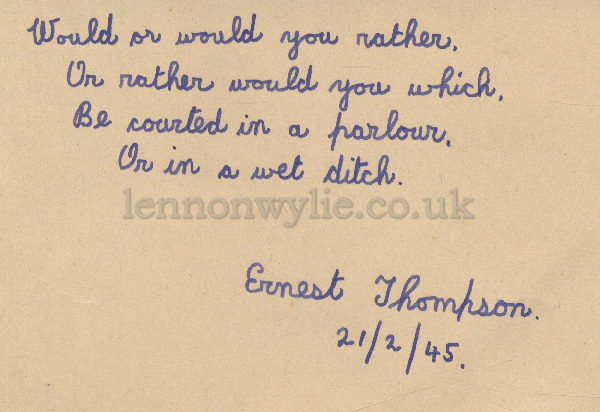 Would or would you rather.
Or rather would you which.
Be courted in a parlour.
Or in a wet ditch.
lennonwylie.co.uk
Ernest Thompson.
21/2/45.